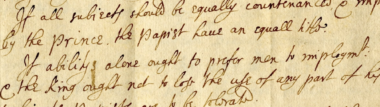 If all subiects should be equally countenanced & imp
by the Prince, the Papist have an equall title
If ability alone ought to prefer men to imploymt.
& the King ought not to lose the use of any part of his
to be tolerated